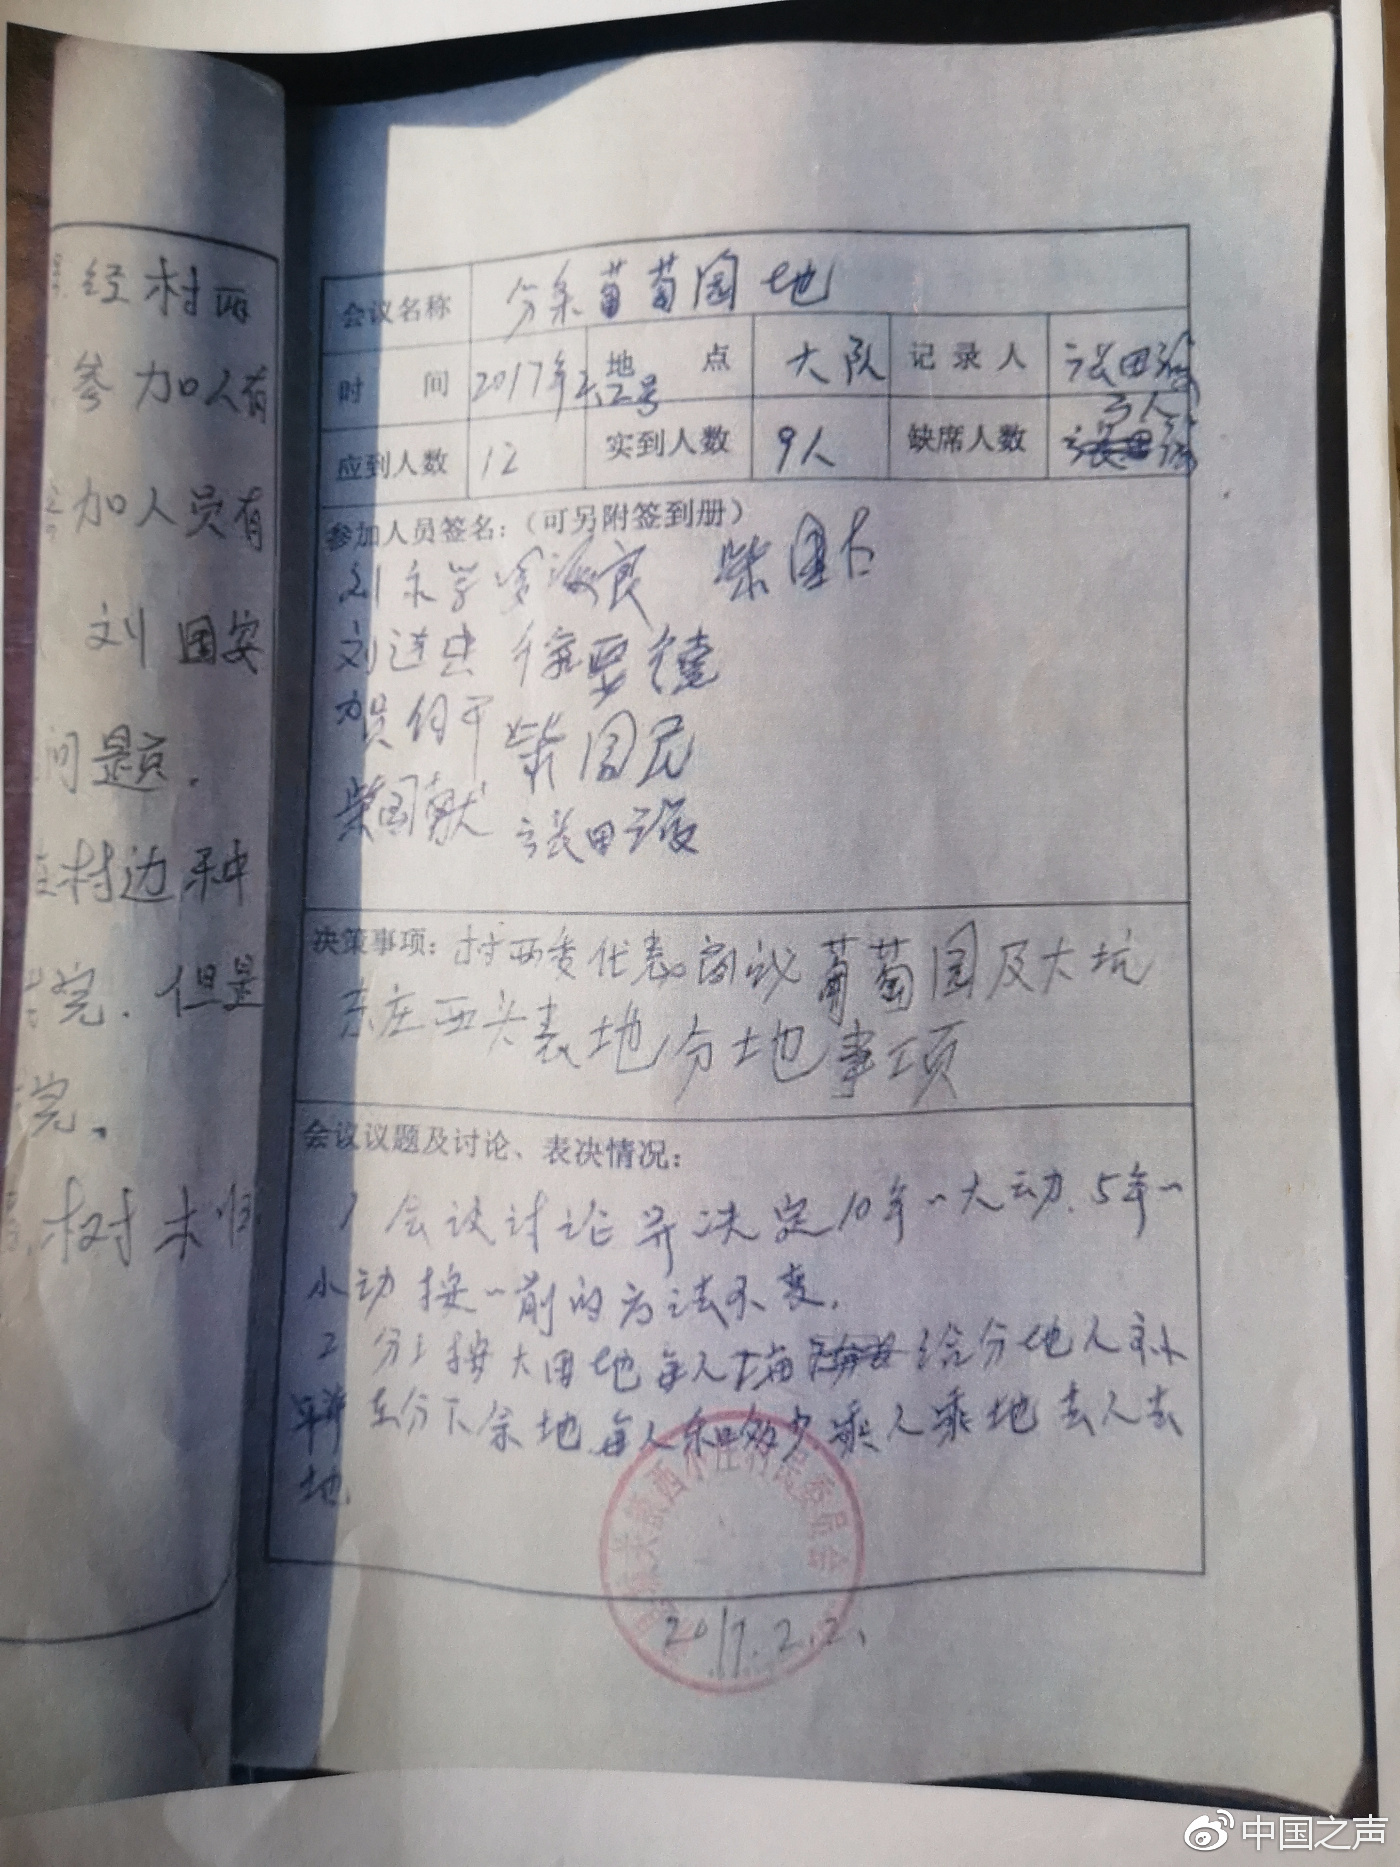 经村两
参加人有
加人员有
刘国安
问题.
村边种
完.但是
完.
树木归
会议名称 分东葡萄园地
时 间 2017年2.2号 地 点 大队 记录人 张田
应到人数 12 实到人数 9人 缺席人数 3人
参加人员签名：（可另附签到册）
刘永学 良 柴国
刘进忠 德
贺付平 柴国民
柴国献 张田
决策事项：村两委代表商议葡萄园及大坑
东庄西头表地分地事项
会议议题及讨论、表决情况：
1 会议讨论并决定10年一大动.5年一
小动按一前的方法不变.
2 分 按大田地每人 给分地人
在分下余地.每人和多少乘人乘地去人去
地.
西小庄村民委员会
2017.2.2.
中国之声